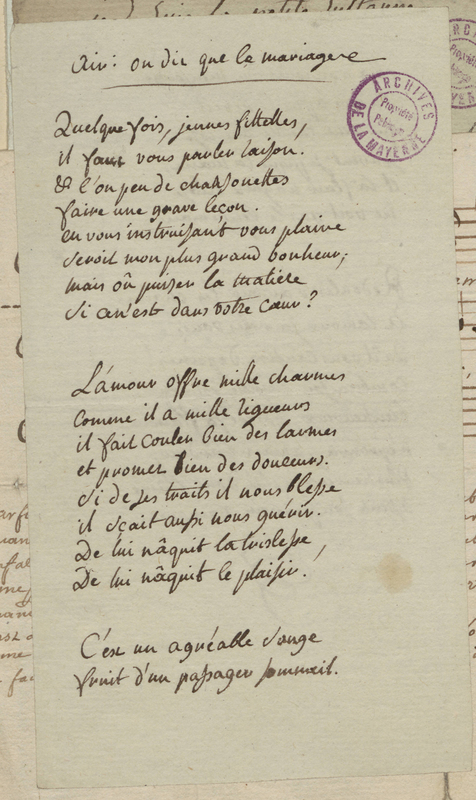 Air: on dit que le mariage
Quelque fois, jeunes fillettes,
il faut vous parler raison.
& l'on peu de chansonettes
faire une grave leçon.
en vous instruisant vous plaire
seroit mon plus grand bonheur;
mais où puiser la matière
si ce n'est dans votre cœur?
L'amour offre mille charmes
comme il a mille rigueurs
il fait couler bien des larmes
et promet bien des douceurs.
Si de ses traits il nous blesse
il sçait aussi nous guérir.
De lui nâquit la tristesse,
De lui nâquit le plaisir.
C'est un agréable songe
fruit d'un passager sommeil.
ARCHIVES
DE LA MAYENNE
Propriété
Publique